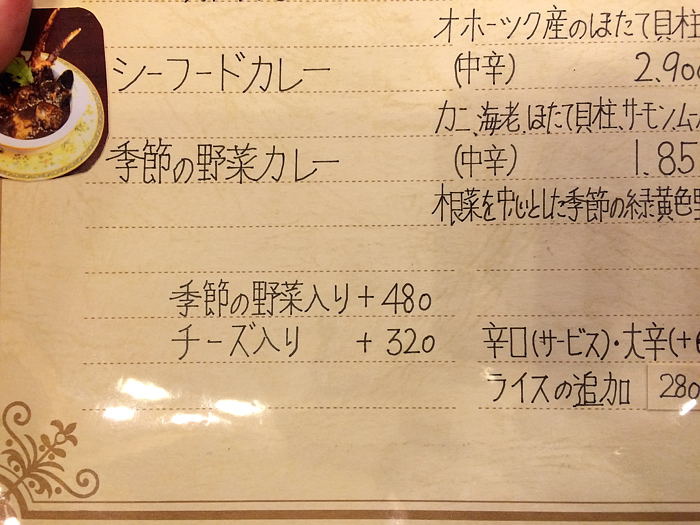 オホーツク産のほたて貝柱
シーフードカレー (中辛) 2.900
カニ、海老、ほたて貝柱、サーモン、ムー
季節の野菜カレー (中辛) 1.85
根菜を中心とした季節の緑黄色野
季節の野菜入り +480
チーズ入り +320 辛口(サービス)・大辛(+
ライスの追加 280